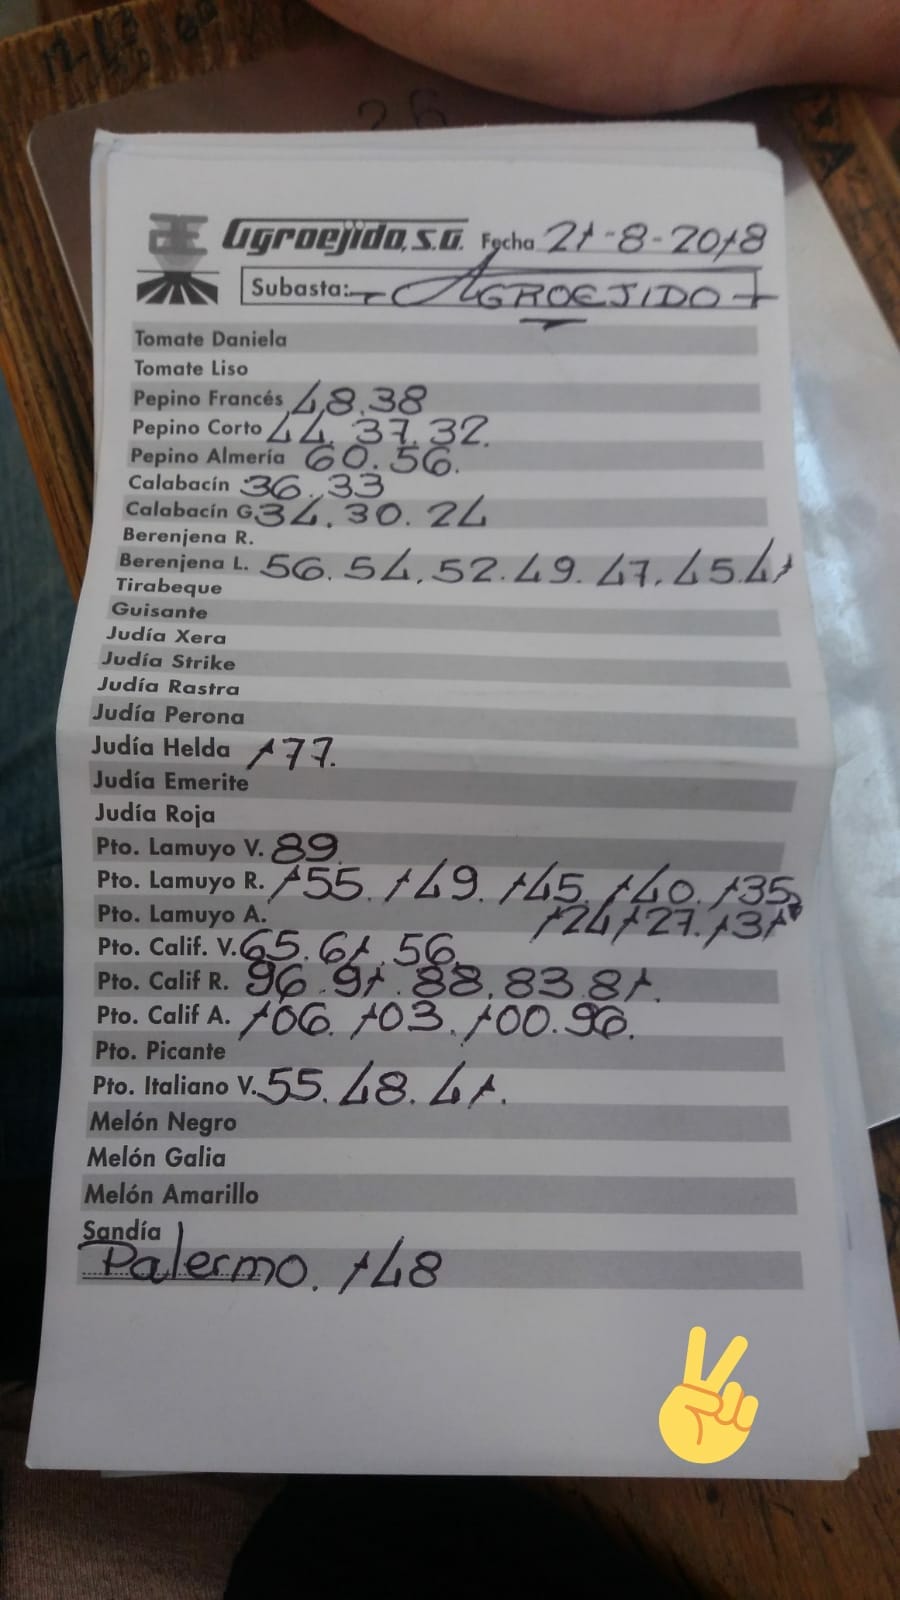 26
Agroejido, S.A. Fecha 21-8-2018
Subasta: AGROEJIDO
Tomate Daniela
Tomate Liso
Pepino Francés 48.38
Pepino Corto 44. 37. 32.
Pepino Almería 60. 56.
Calabacín 36. 33
Calabacín G. 34. 30. 24
Berenjena R.
Berenjena L. 56. 54. 52. 49. 47. 45. 41
Tirabeque
Guisante
Judía Xera
Judía Strike
Judía Rastra
Judía Perona
Judía Helda 177.
Judía Emerite
Judía Roja
Pto. Lamuyo V. 89
Pto. Lamuyo R. 155. 149. 145. 140. 135,
Pto. Lamuyo A. 124 127. 131
Pto. Calif. V. 65. 61. 56.
Pto. Calif R. 96. 91. 88. 83. 81.
Pto. Calif A. 106. 103. 100. 96.
Pto. Picante
Pto. Italiano V. 55. 48. 41.
Melón Negro
Melón Galia
Melón Amarillo
Sandía
Palermo. 148